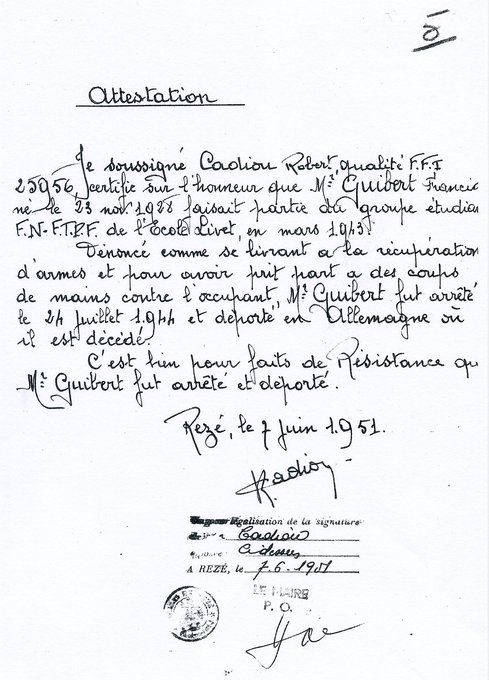 5
Attestation
Je soussigné Cadiou Robert, qualité F.F.I
25956, certifie sur l'honneur que Mr Guibert Francis
né le 23 nov 1928 faisait partie du groupe étudian
F.N-F.T.P.F. de l'Ecole Livet, en mars 1943.
Dénoncé comme se livrant a la récupération
d'armes et pour avoir prit part a des coups
de mains contre l'occupant, Mr Guibert fut arrêté
le 24 juillet 1944 et déporté en Allemagne où
il est décédé.
C'est bien pour faits de Résistance qu
Mr Guibert fut arrêté et déporté.
Rezé, le 7 juin 1951.
Cadiou
légalisation de la signature
de M Cadiou
Cidessus
A REZÉ, le 7.6.1951
LE MAIRE
P. O.